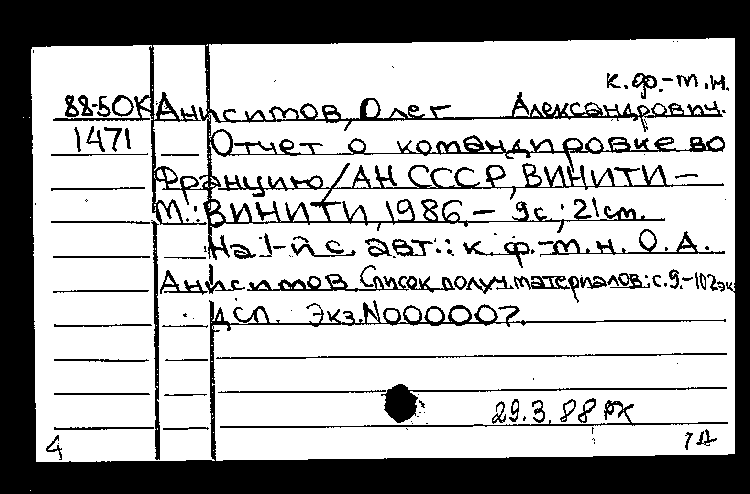 к.ф.-м.н.
88-5ОК Анисимов, Олег Александрович.
1471 Отчет о командировке во
Францию/АН СССР, ВИНИТИ –
М.: ВИНИТИ, 1986. – 9с.; 21см.
На 1-й с. авт.: к. ф.-м. н. О. А.
Анисимов. Список получ. материалов: с. 9. – 102 эк
ДСП. Экз. N000007.
29.3.88 РК
4